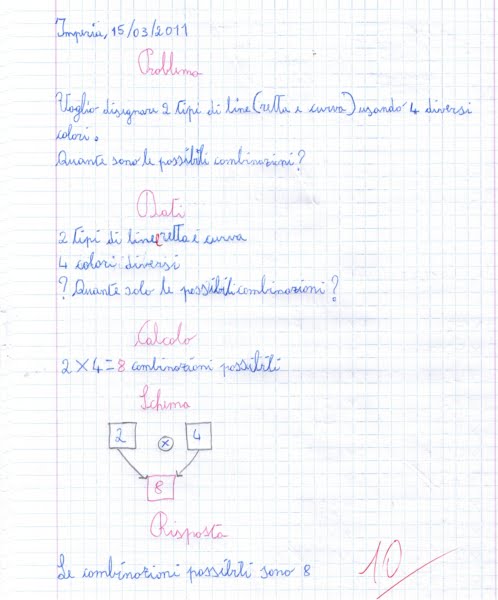 Imperia, 15/03/2011
Problema
Voglio disegnare 2 tipi di line (retta e curva) usando 4 diversi
colori.
Quante sono le possibili combinazioni?
Dati
2 tipi di line(retta e curva
4 colori diversi
? Quante solo le possibili combinazioni?
Calcolo
2 × 4 = 8 combinazioni possibili
Schema
2 × 4
8
Risposta
Le combinazioni possibili sono 8
10